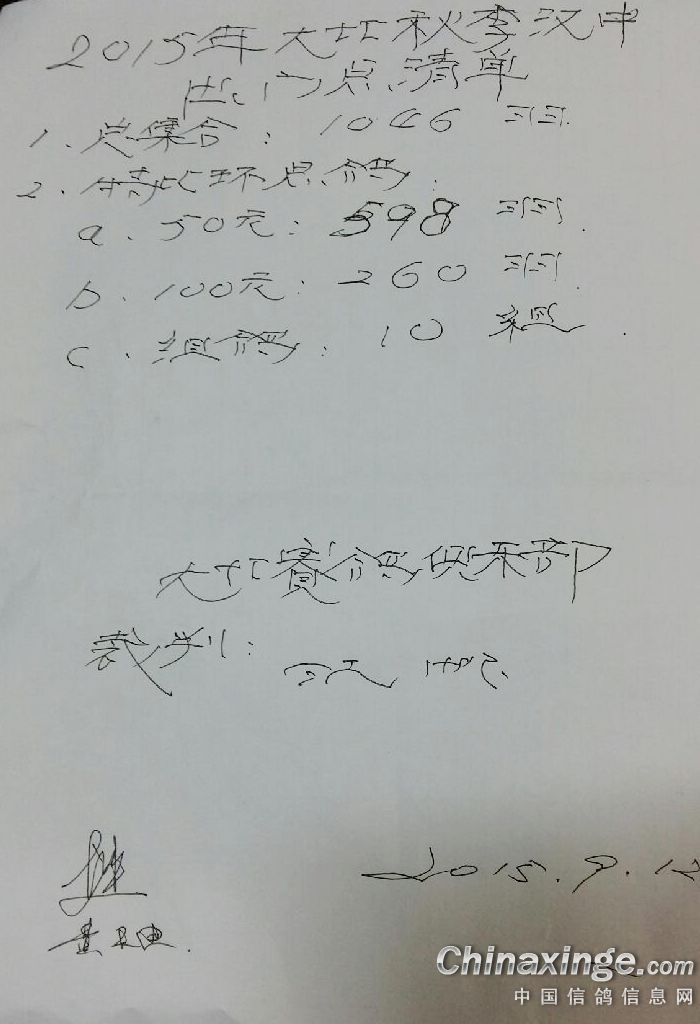 2015年大北秋季汉中
出门点清单
1、总集合：1046羽.
2、特比环点鸽：
a、50元：598羽.
b、100元：260羽.
c、组鸽：10组.
大北赛鸽俱乐部
裁判：
2015.9.12
Chinaxinge.com
中国信鸽信息网